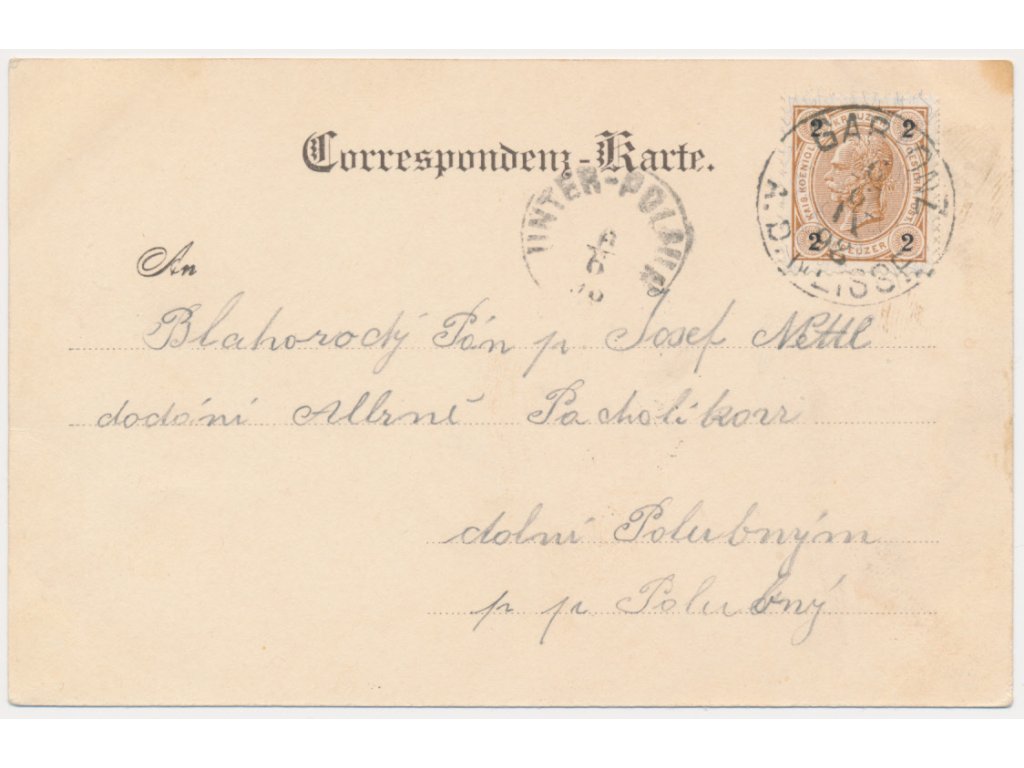 Correspondenz-Karte.
2 KREUZER 2
2 KREUZER 2
A. D. NEISSE
98
UNTER-POLAUN
An
Blahorodý Pán p. Josef Nettl
dodání Albrně Pacholíkovi
dolní Polubným
p p Polubný